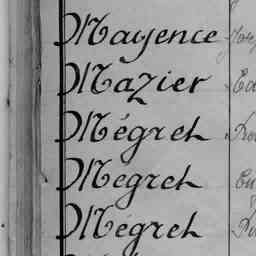 Mayence
Mazier
Mégret
Megret
Mégret